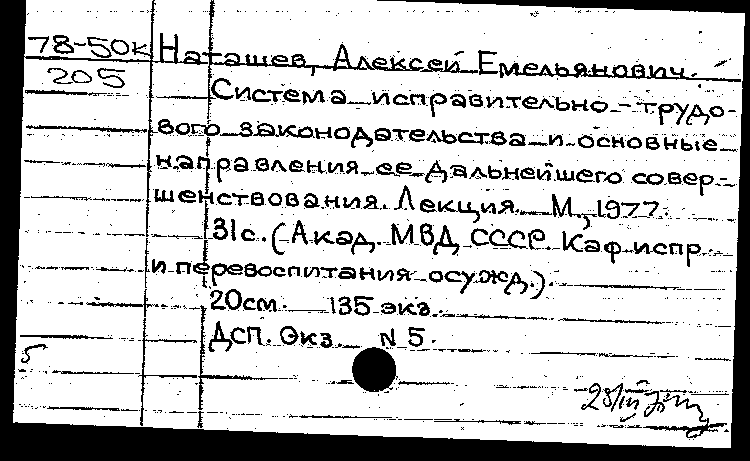 78-50к
205
Наташев, Алексей Емельянович.
Система исправительно-трудо-
вого законодательства и основные
направления ее дальнейшего совер-
шенствования. Лекция. М., 1977.
31с. (Акад. МВД СССР. Каф. испр.
и перевоспитания осужд.).
20см. 135 экз.
ДСП. Экз. N 5.
5